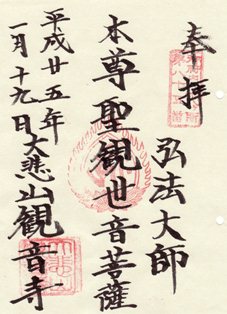 奉拝
弘法大師
本尊聖観世音菩薩
平成廿五年
一月十九日大悲山観音寺